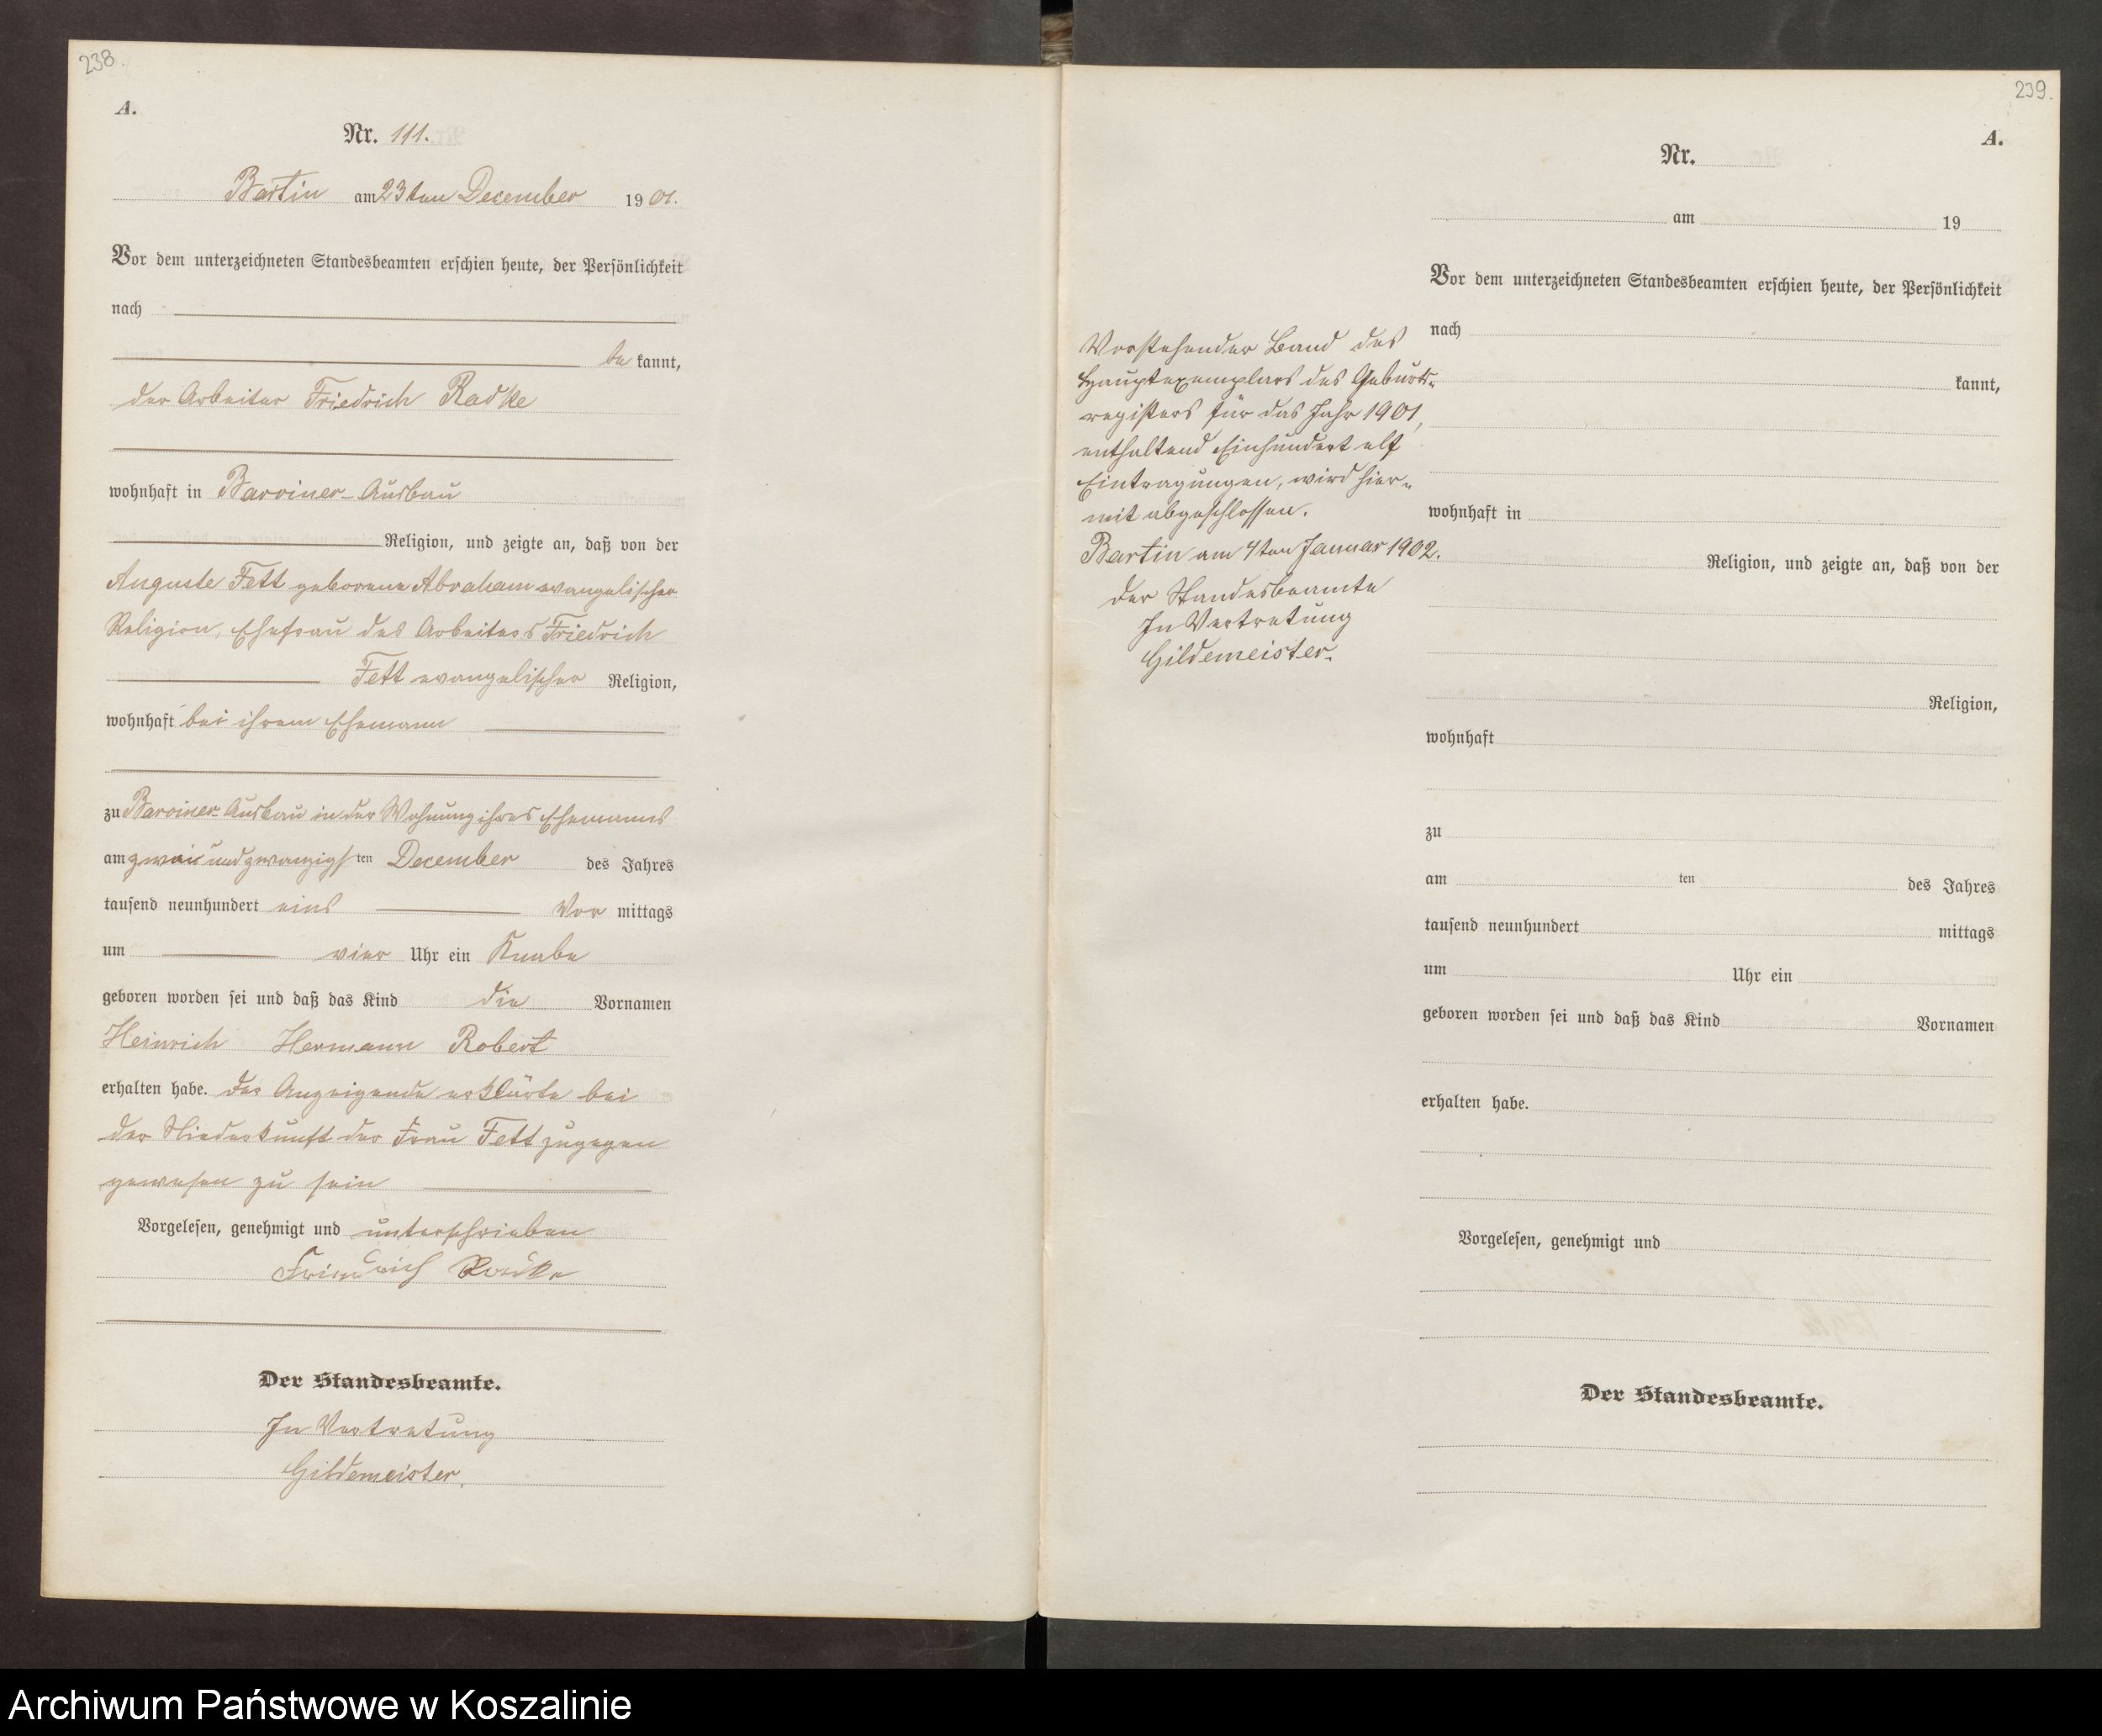 238.
A.
Nr. 111.
Bartin am 23ten December 1901.
Vor dem unterzeichneten Standesbeamten erschien heute, der Persönlichkeit
nach
be kannt,
der Arbeiter Friedrich Radke
wohnhaft in Barviner-Ausbau
Religion, und zeigte an, daß von der
Auguste Fett geborene Abraham evangelischer
Religion, Ehefrau des Arbeiters Friedrich
Fett evangelischer Religion,
wohnhaft bei ihrem Ehemann
zu Barviner-Ausbau in der Wohnung ihres Ehemanns
am zwei und zwanzigsten December des Jahres
tausend neunhundert eins Vor mittags
um vier Uhr ein Knabe
geboren worden sei und daß das Kind die Vornamen
Heinrich Hermann Robert
erhalten habe. Der Anzeigende erklärte bei
der Niederkunft der Frau Fett zugegen
gewesen zu sein
Vorgelesen, genehmigt und unterschrieben
Friedrich Radke
Der Standesbeamte.
In Vertretung
Gildemeister.
239.
A.
Nr.
am 19
Vor dem unterzeichneten Standesbeamten erschien heute, der Persönlichkeit
nach
kannt,
wohnhaft in
Religion, und zeigte an, daß von der
Religion,
wohnhaft
zu
am ten des Jahres
tausend neunhundert mittags
um Uhr ein
geboren worden sei und daß das Kind Vornamen
erhalten habe.
Vorgelesen, genehmigt und
Der Standesbeamte.
Vorstehender Band des
Hauptexemplars des Geburts-
registers für das Jahr 1901,
enthaltend Einhundert elf
Eintragungen, wird hier-
mit abgeschlossen.
Bartin am 4ten Januar 1902.
Der Standesbeamte
In Vertretung
Gildemeister.
Archiwum Państwowe w Koszalinie